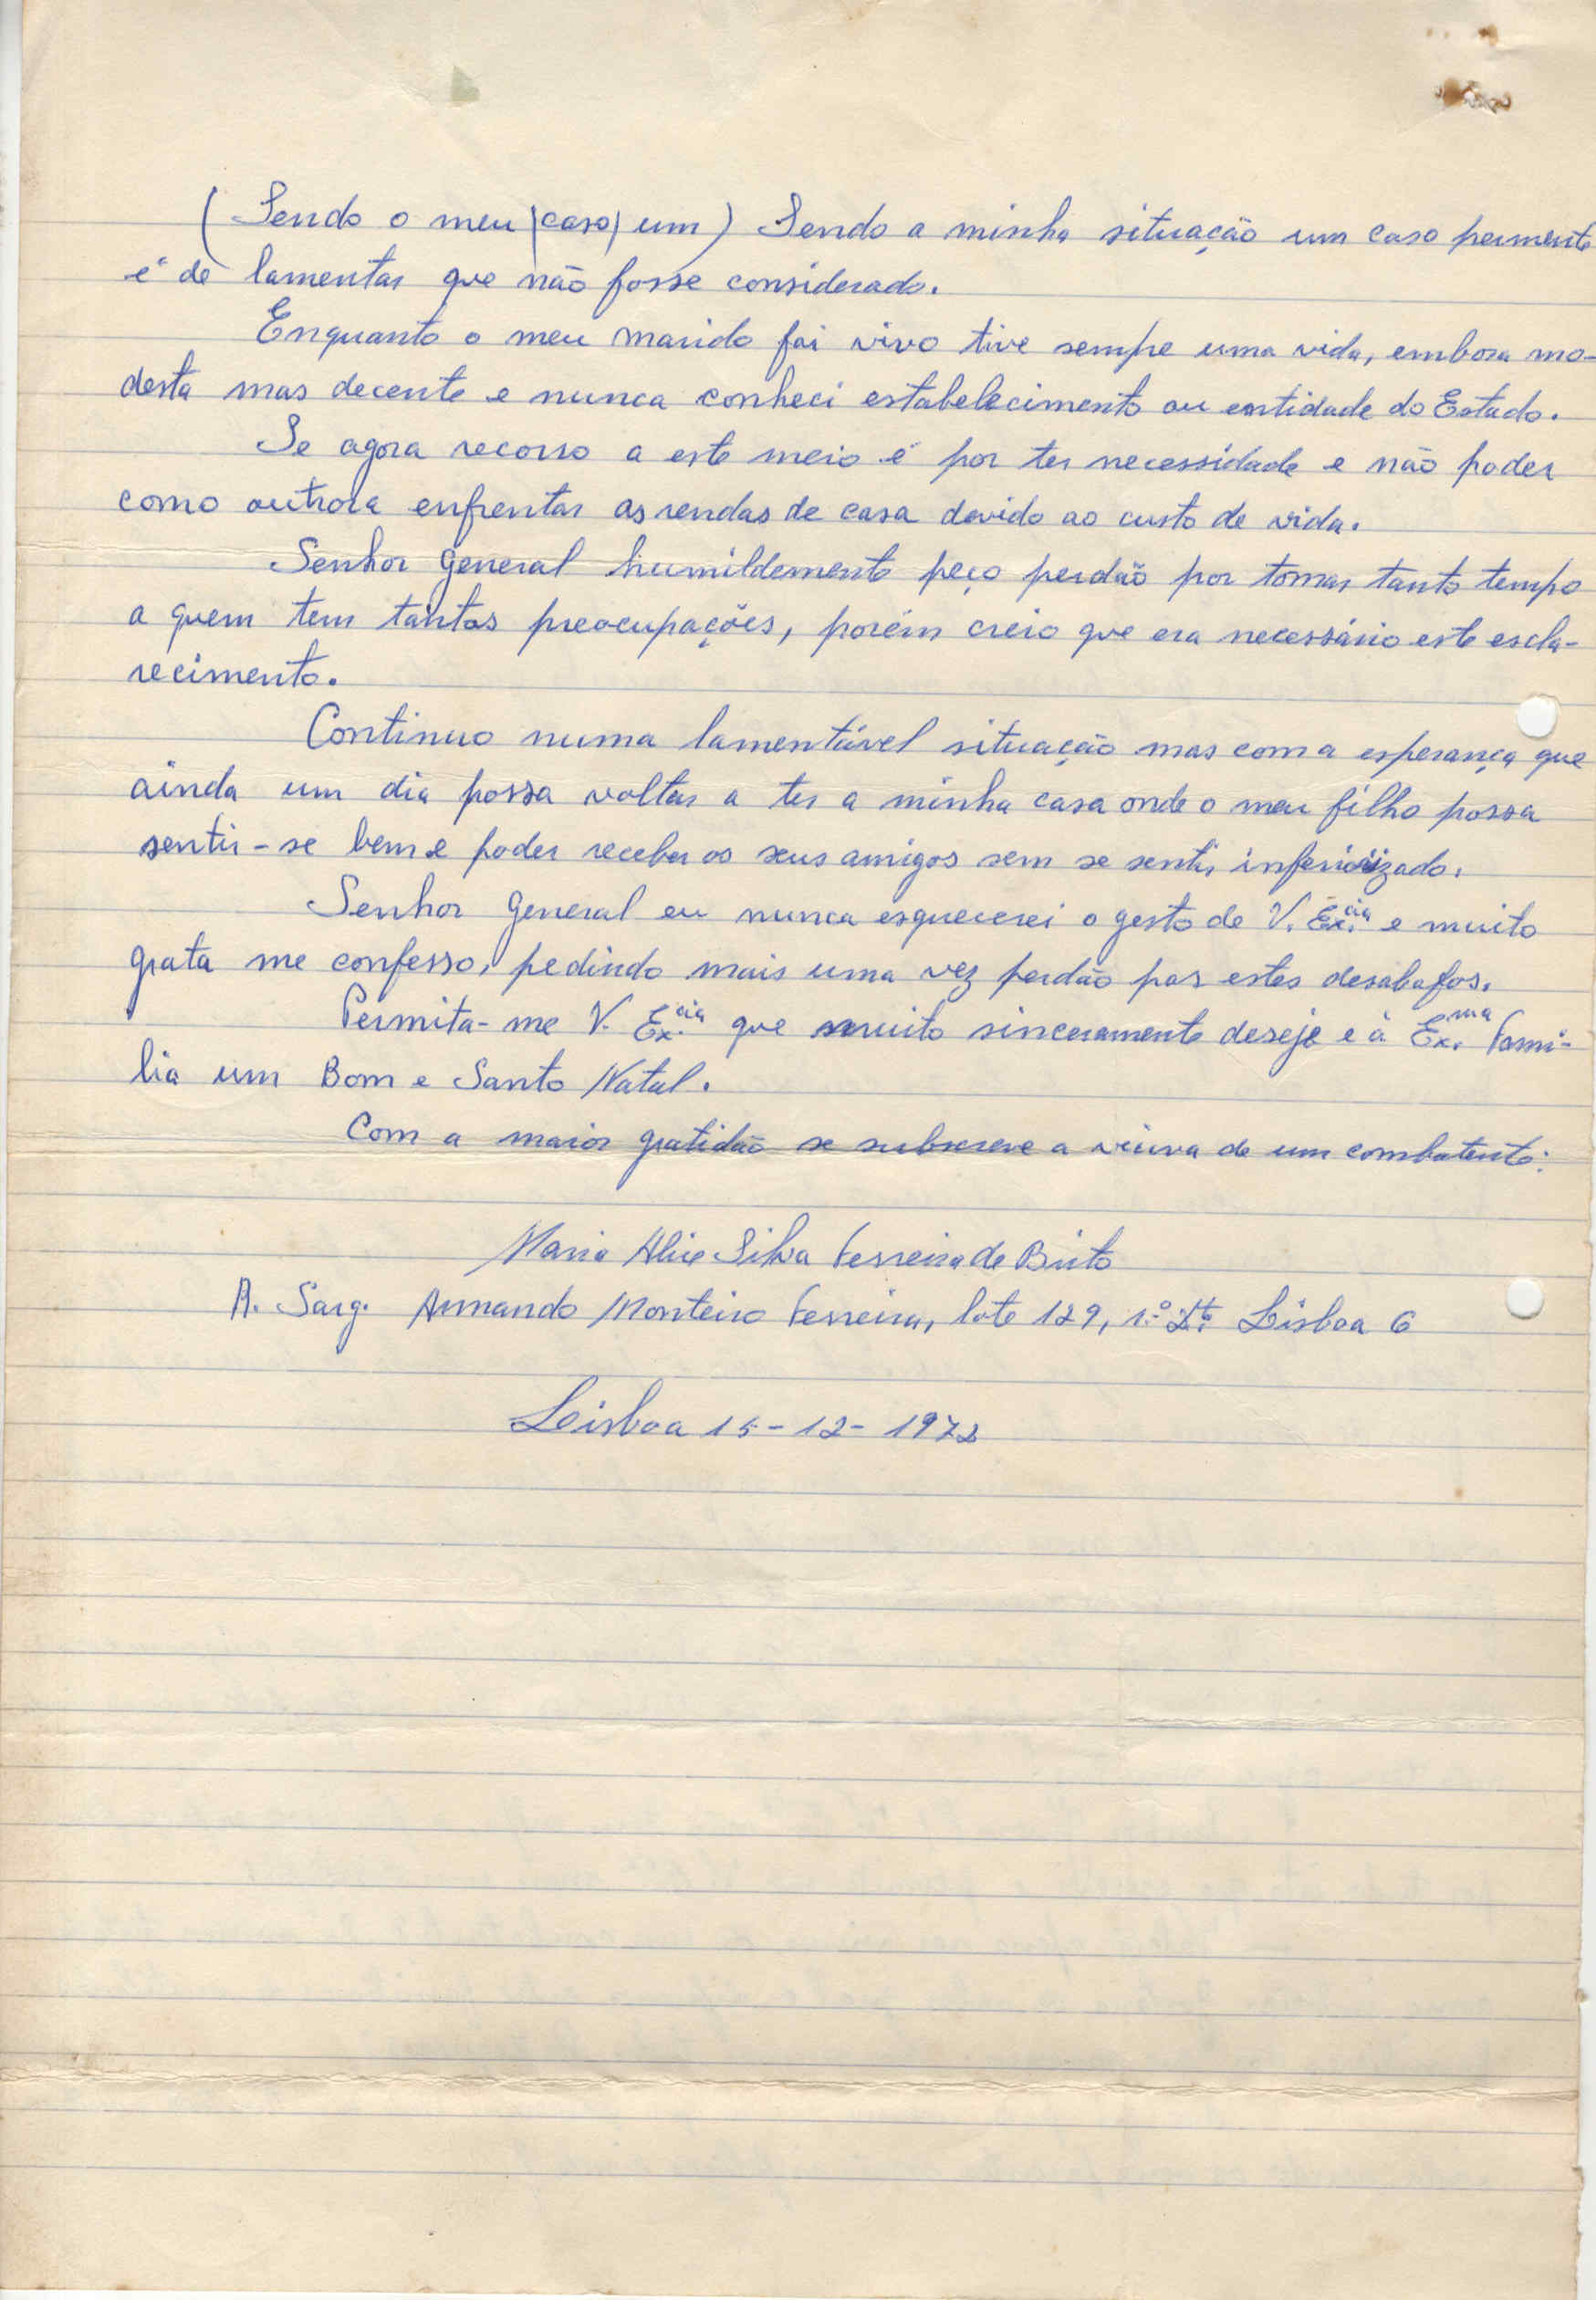 (Sendo o meu |caso| um) Sendo a minha situação um caso permente
é de lamentar que não fosse considerado.
Enquanto o meu marido foi vivo tive sempre uma vida, embora mo-
desta mas decente e nunca conheci estabelecimento ou entidade do Estado.
Se agora recorro a este meio é por ter necessidade e não poder
como outrora enfrentar as rendas de casa devido ao custo de vida.
Senhor General humildemente peço perdão por tomar tanto tempo
a quem tem tantas preocupações, porém creio que era necessário este escla-
recimento.
Continuo numa lamentável situação mas com a esperança que
ainda um dia possa voltar a ter a minha casa onde o meu filho possa
sentir-se bem e poder receber os seus amigos sem se sentir inferiorizado.
Senhor General eu nunca esquecerei o gesto de V. Ex.cia e muito
grata me confesso, pedindo mais uma vez perdão por estes desabafos.
Permita-me V. Ex.cia que muito sinceramente deseje e à Ex.ma Famí-
lia um Bom e Santo Natal.
Com a maior gratidão se subscreve a viuva de um combatente:
Maria Alice Silva Ferreira de Brito
R. Sarg. Armando Monteiro Ferreira, lote 129, 1.º Dt.º Lisboa 6
Lisboa 15-12-1972